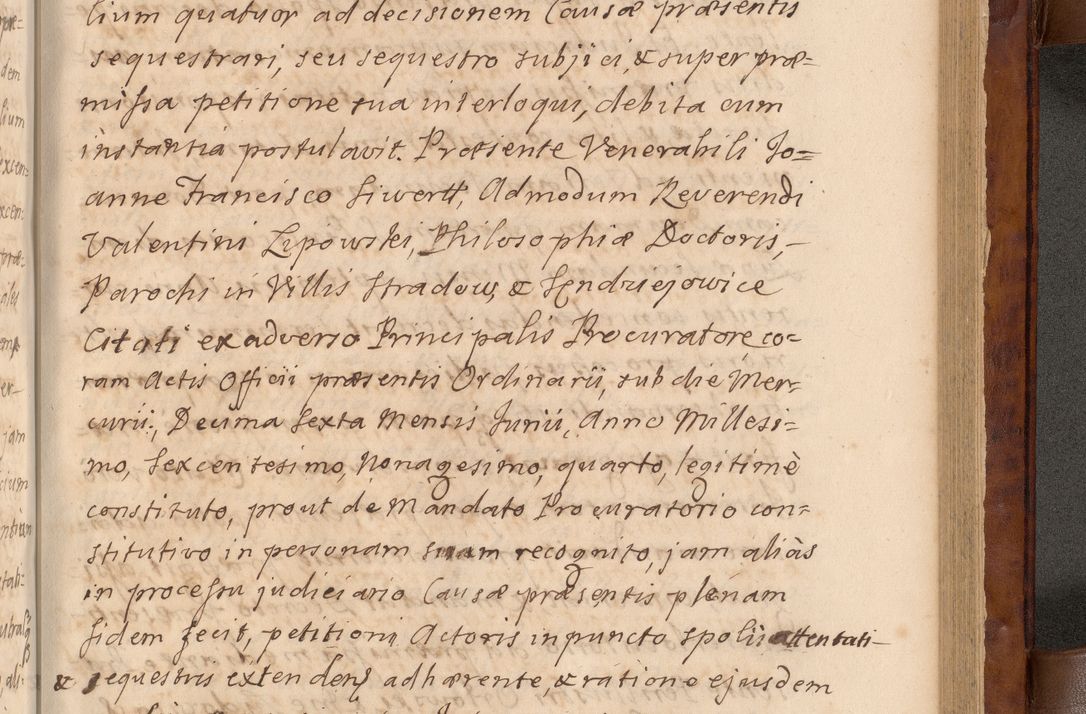 lium quatuor ad decisionem Causæ præsentis
sequestrari, seu sequestro subjici, & super præ=
missa petitione sua interloqui, debita cum
instantia postulavit. Præsente Venerabili Jo=
anne Francisco Siwertt, Admodum Reverendi
Valentini Lipowski, Philosophiæ Doctoris,
Parochi in Villis Stradow, & Sendziejowice
Citati ex adverso Principalis Procuratore co=
ram Actis Officii præsentis Ordinarii, sub die Mer=
curii, Decima Sexta Mensis Junii, Anno Millesi=
mo, Sexcentesimo, Nonagesimo, quarto, legitimè
constituto, prout de Mandato Procuratorio con=
stitutivo in personam suam recognito, jam aliàs
in processu judiciario Causæ præsentis plenam
fidem fecit, petitioni Actoris in puncto spolii attentati
& sequestris extendens adhærente, & ratione ejusdem